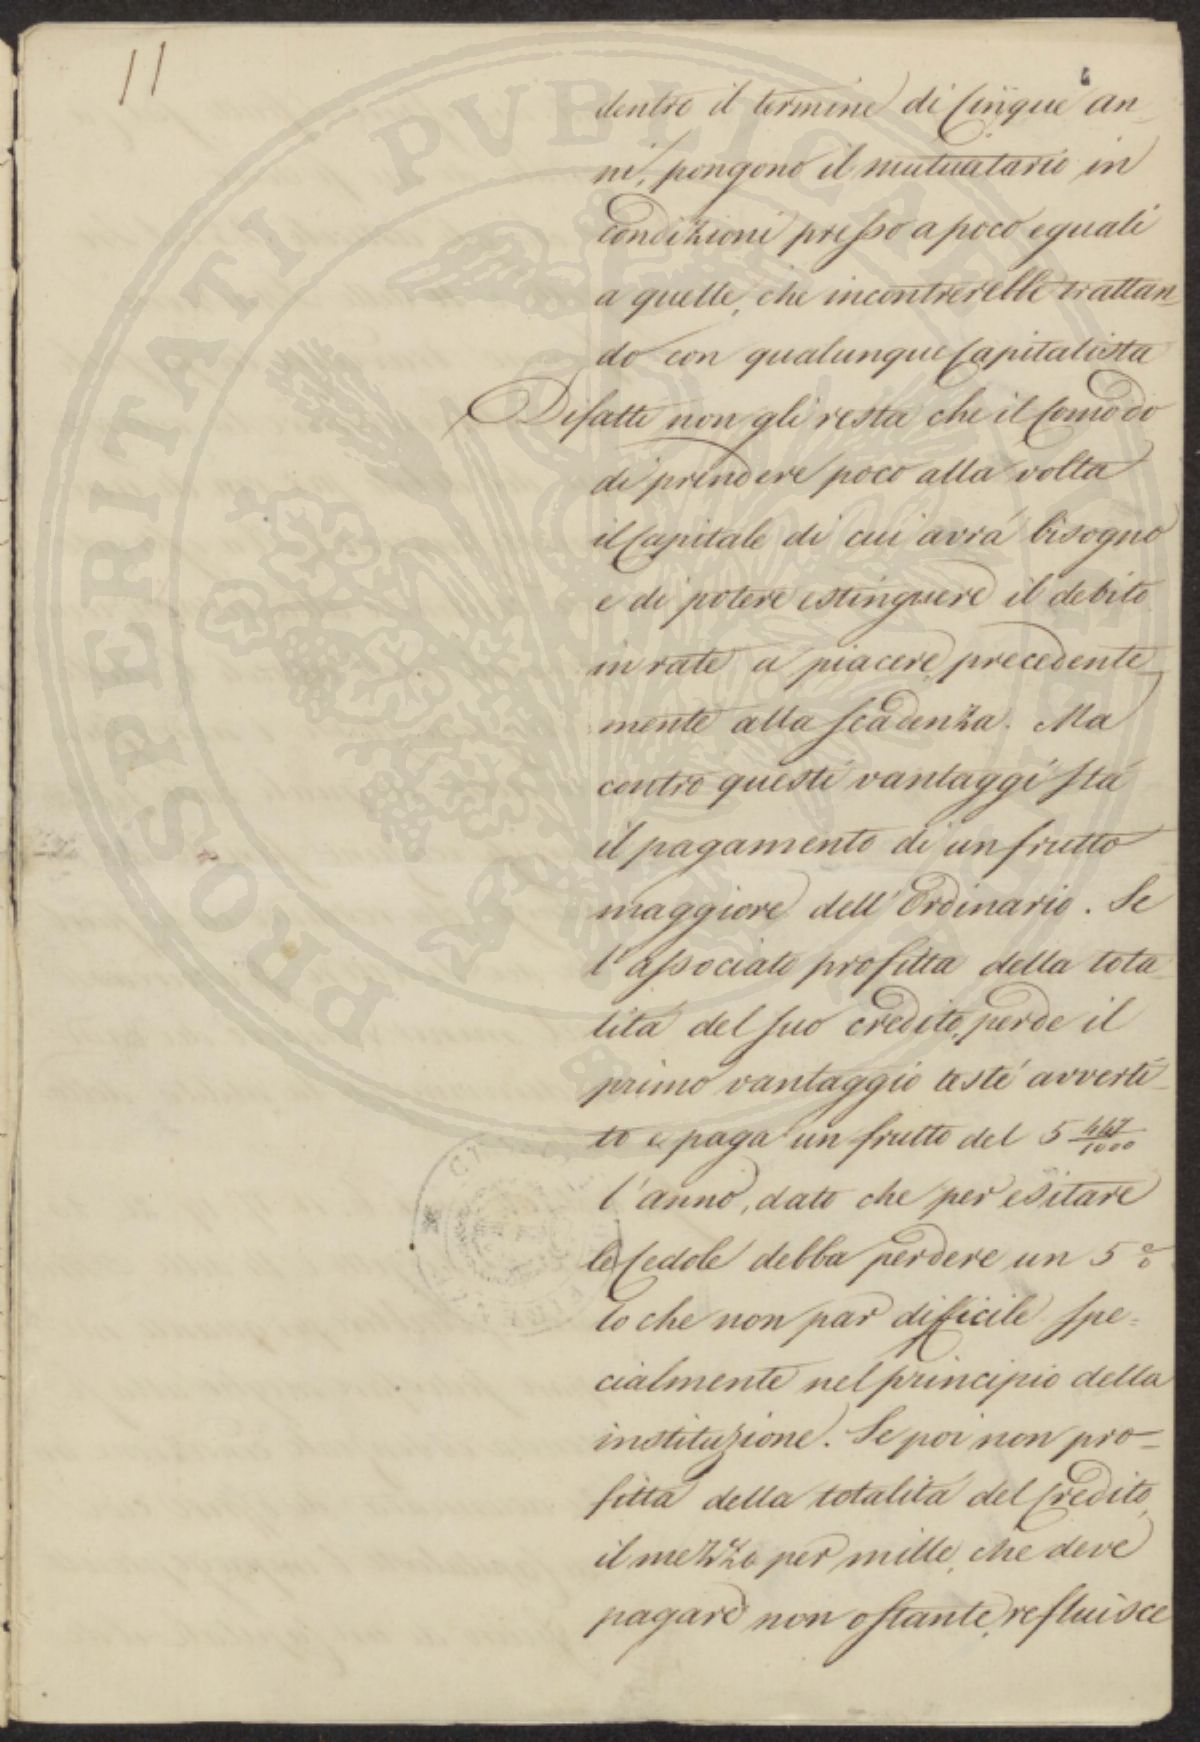 11
6
dentro il termine di Cinque an-
ni, pongono il mutuatario in
condizioni presso a poco eguali
a quelle, che incontrerebbe trattan-
do con qualunque Capitalista
Difatti non gli resta che il Comodo
di prendere poco alla volta
il Capitale di cui avrà bisogno
e di potere estinguere il debito
in rate a piacere, precedente-
mente alla scadenza. Ma
contro questi vantaggi stà
il pagamento di un frutto
maggiore dell'Ordinario. Se
l'associato profitta della tota-
lità del suo credito, perde il
primo vantaggio testè avverti-
to e paga un frutto del 5 447/1000
l'anno, dato che per esitare
le Cedole debba perdere un 5 %
lo che non par difficile spe=
cialmente nel principio della
instituzione. Se poi non pro-
fitta della totalità del Credito,
il mezzo per mille, che deve
pagare non ostante, refluisce
PROSPERITATI PUBLICAE